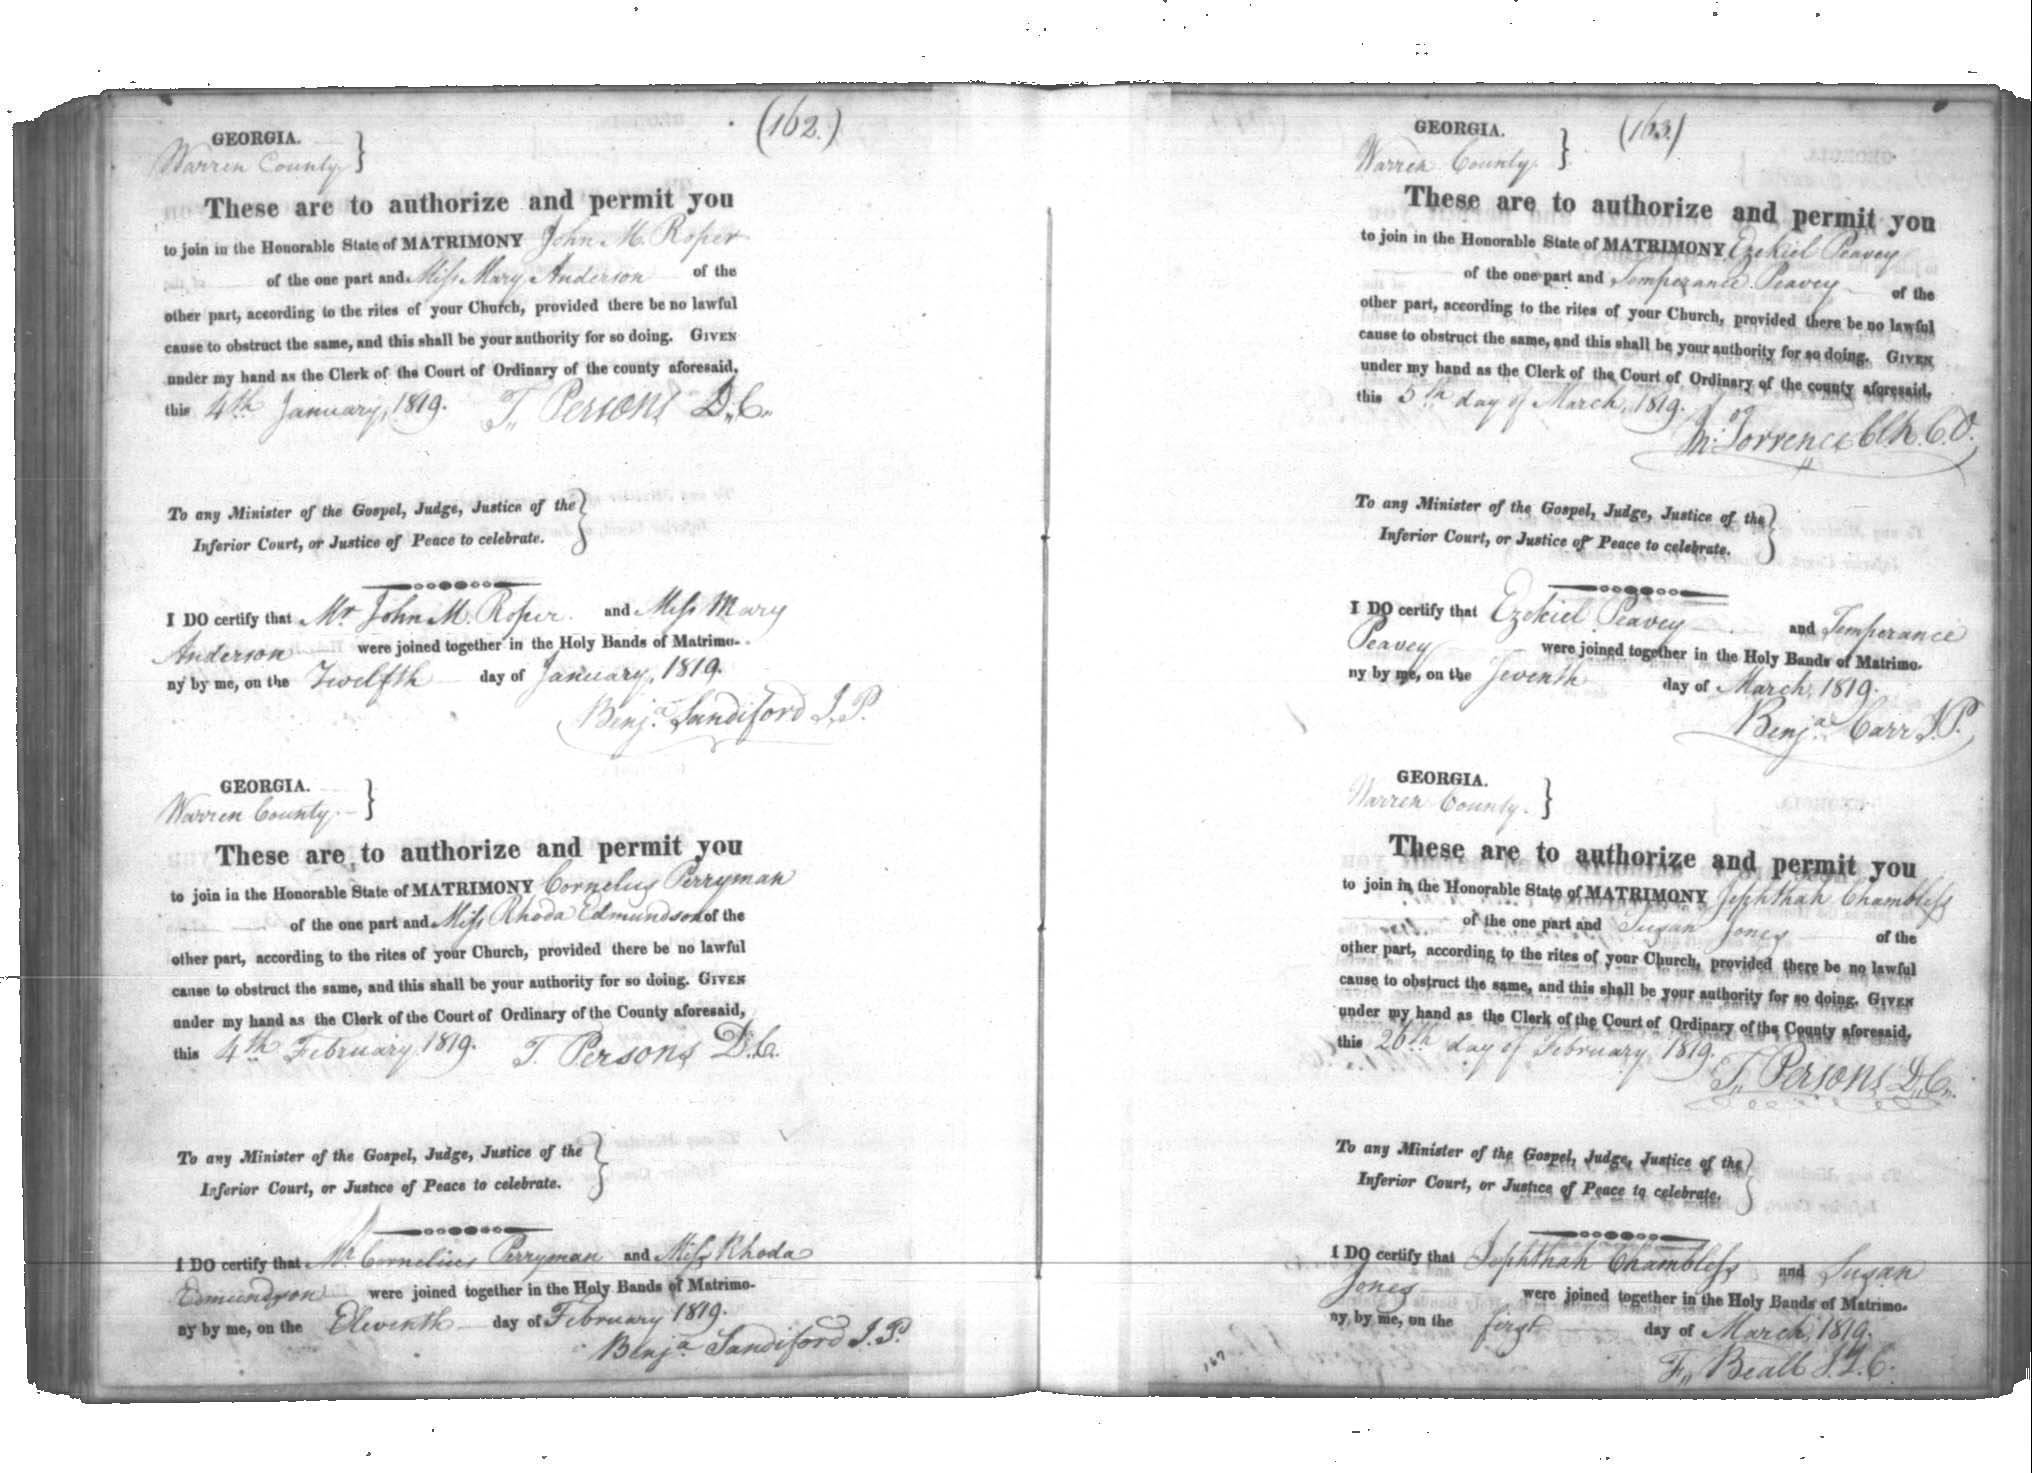 (162.)
GEORGIA. }
Warren County
These are to authorize and permit you
to join in the Honorable State of MATRIMONY John M. Roper
of the one part and Miss Mary Anderson of the
other part, according to the rites of your Church, provided there be no lawful
cause to obstruct the same, and this shall be your authority for so doing. GIVEN
under my hand as the Clerk of the Court of Ordinary of the county aforesaid,
this 4th January, 1819. T,, Persons D,,C,,
To any Minister of the Gospel, Judge, Justice of the }
Inferior Court, or Justice of Peace to celebrate.
I DO certify that Mr John M. Roper. and Miss Mary
Anderson were joined together in the Holy Bands of Matrimo-
ny by me, on the Twelfth day of January, 1819.
Benja. Sandiford J.P.
GEORGIA. }
Warren County.
These are to authorize and permit you
to join in the Honorable State of MATRIMONY Cornelius Perryman
of the one part and Miss Rhoda Edmundson of the
other part, according to the rites of your Church, provided there be no lawful
cause to obstruct the same, and this shall be your authority for so doing. GIVEN
under my hand as the Clerk of the Court of Ordinary of the County aforesaid,
this 4th February 1819. T. Persons D.C.
To any Minister of the Gospel, Judge, Justice of the }
Inferior Court, or Justice of Peace to celebrate.
I DO certify that Mr Cornelius Perryman and Miss Rhoda
Edmundson were joined together in the Holy Bands of Matrimo-
ny by me, on the Eleventh day of February 1819.
Benja. Sandiford J.P.
(163.)
GEORGIA. }
Warren County.
These are to authorize and permit you
to join in the Honorable State of MATRIMONY Ezekiel Peavey
of the one part and Temperance Peavey of the
other part, according to the rites of your Church, provided there be no lawful
cause to obstruct the same, and this shall be your authority for so doing. GIVEN
under my hand as the Clerk of the Court of Ordinary of the county aforesaid,
this 5th day of March, 1819.
Torrence Clk. C.O.
To any Minister of the Gospel, Judge, Justice of the }
Inferior Court, or Justice of Peace to celebrate.
I DO certify that Ezekiel Peavey and Temperance
Peavey were joined together in the Holy Bands of Matrimo-
ny by me, on the Seventh day of March, 1819.
Benja. Carr J.P.
GEORGIA. }
Warren County.
These are to authorize and permit you
to join in the Honorable State of MATRIMONY Jephthah Chambless
of the one part and Susan Jones of the
other part, according to the rites of your Church, provided there be no lawful
cause to obstruct the same, and this shall be your authority for so doing. GIVEN
under my hand as the Clerk of the Court of Ordinary of the County aforesaid,
this 26th day of February, 1819.
T,, Persons D,,C,,
To any Minister of the Gospel, Judge, Justice of the }
Inferior Court, or Justice of Peace to celebrate.
I DO certify that Jephthah Chambless and Susan
Jones were joined together in the Holy Bands of Matrimo-
ny by me, on the first day of March, 1819.
F,, Beall J.I.C.